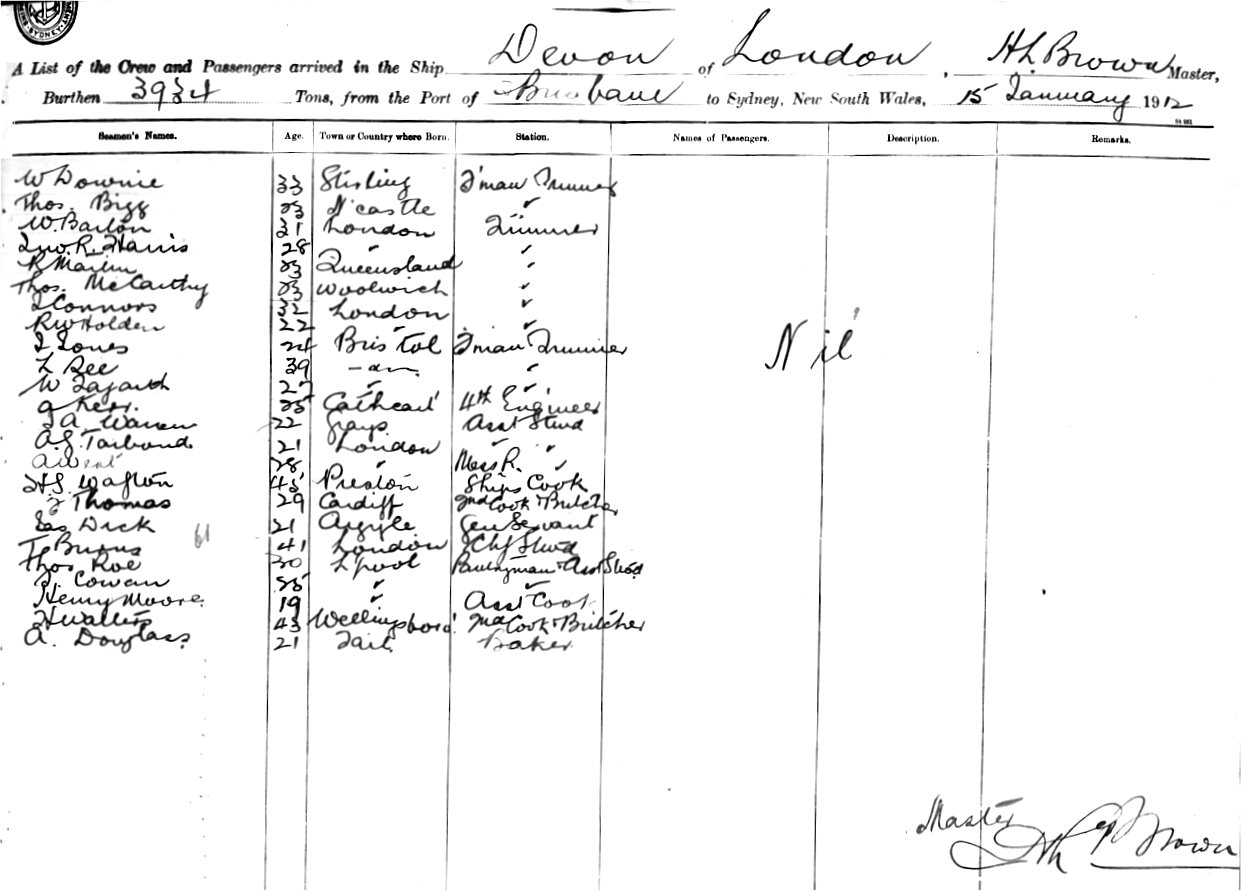 SYDNEY
A List of the Crew and Passengers arrived in the Ship Devon of London, H L Brown Master,
Burthen 3934 Tons, from the Port of Brisbane to Sydney, New South Wales, 15 January 1912
Seamen's Names. Age. Town or Country where Born. Station. Names of Passengers. Description. Remarks.
W Downie 33 Stirling F'man Trimmer
Thos. Bigg 23 N'castle "
W. Barton 21 London Trimmer
Jno. R. Harris 28 " "
R Martin 23 Queensland "
Thos. McCarthy 23 Woolwich "
J Connors 32 London "
R W Holden 22 " "
J Jones 24 Bristol F'man Trimmer
39 - do - "
W 27 " "
A Kerr. 25 Cathcart 4th Engineer
J A Warren 22 Grays Asst Stwd
A. J. 21 London "
28 " Mess R. "
H J. Walton 45 Preston Ships Cook
J Thomas 29 Cardiff 2nd Cook & Butcher
Jas Dick 21 Argyle Gen Servant
T. Burns 41 London Chf Stwd
Thos. Roe 30 L'pool Pantryman & Asst Stwd
J. Cowan 25 " "
Henry Moore. 19 " Asst Cook
H Walters 43 Wellingsboro' 2nd Cook & Butcher
A. Douglass 21 Baker
Nil
Master
Brown